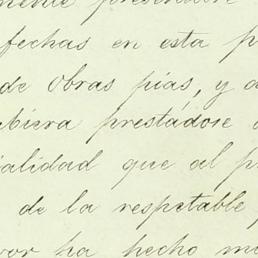 mente presentan
fechas en esta p
de obras pias, y a
ubiera prestádose a
ialidad que al p
de la respetable
vor ha hecho m